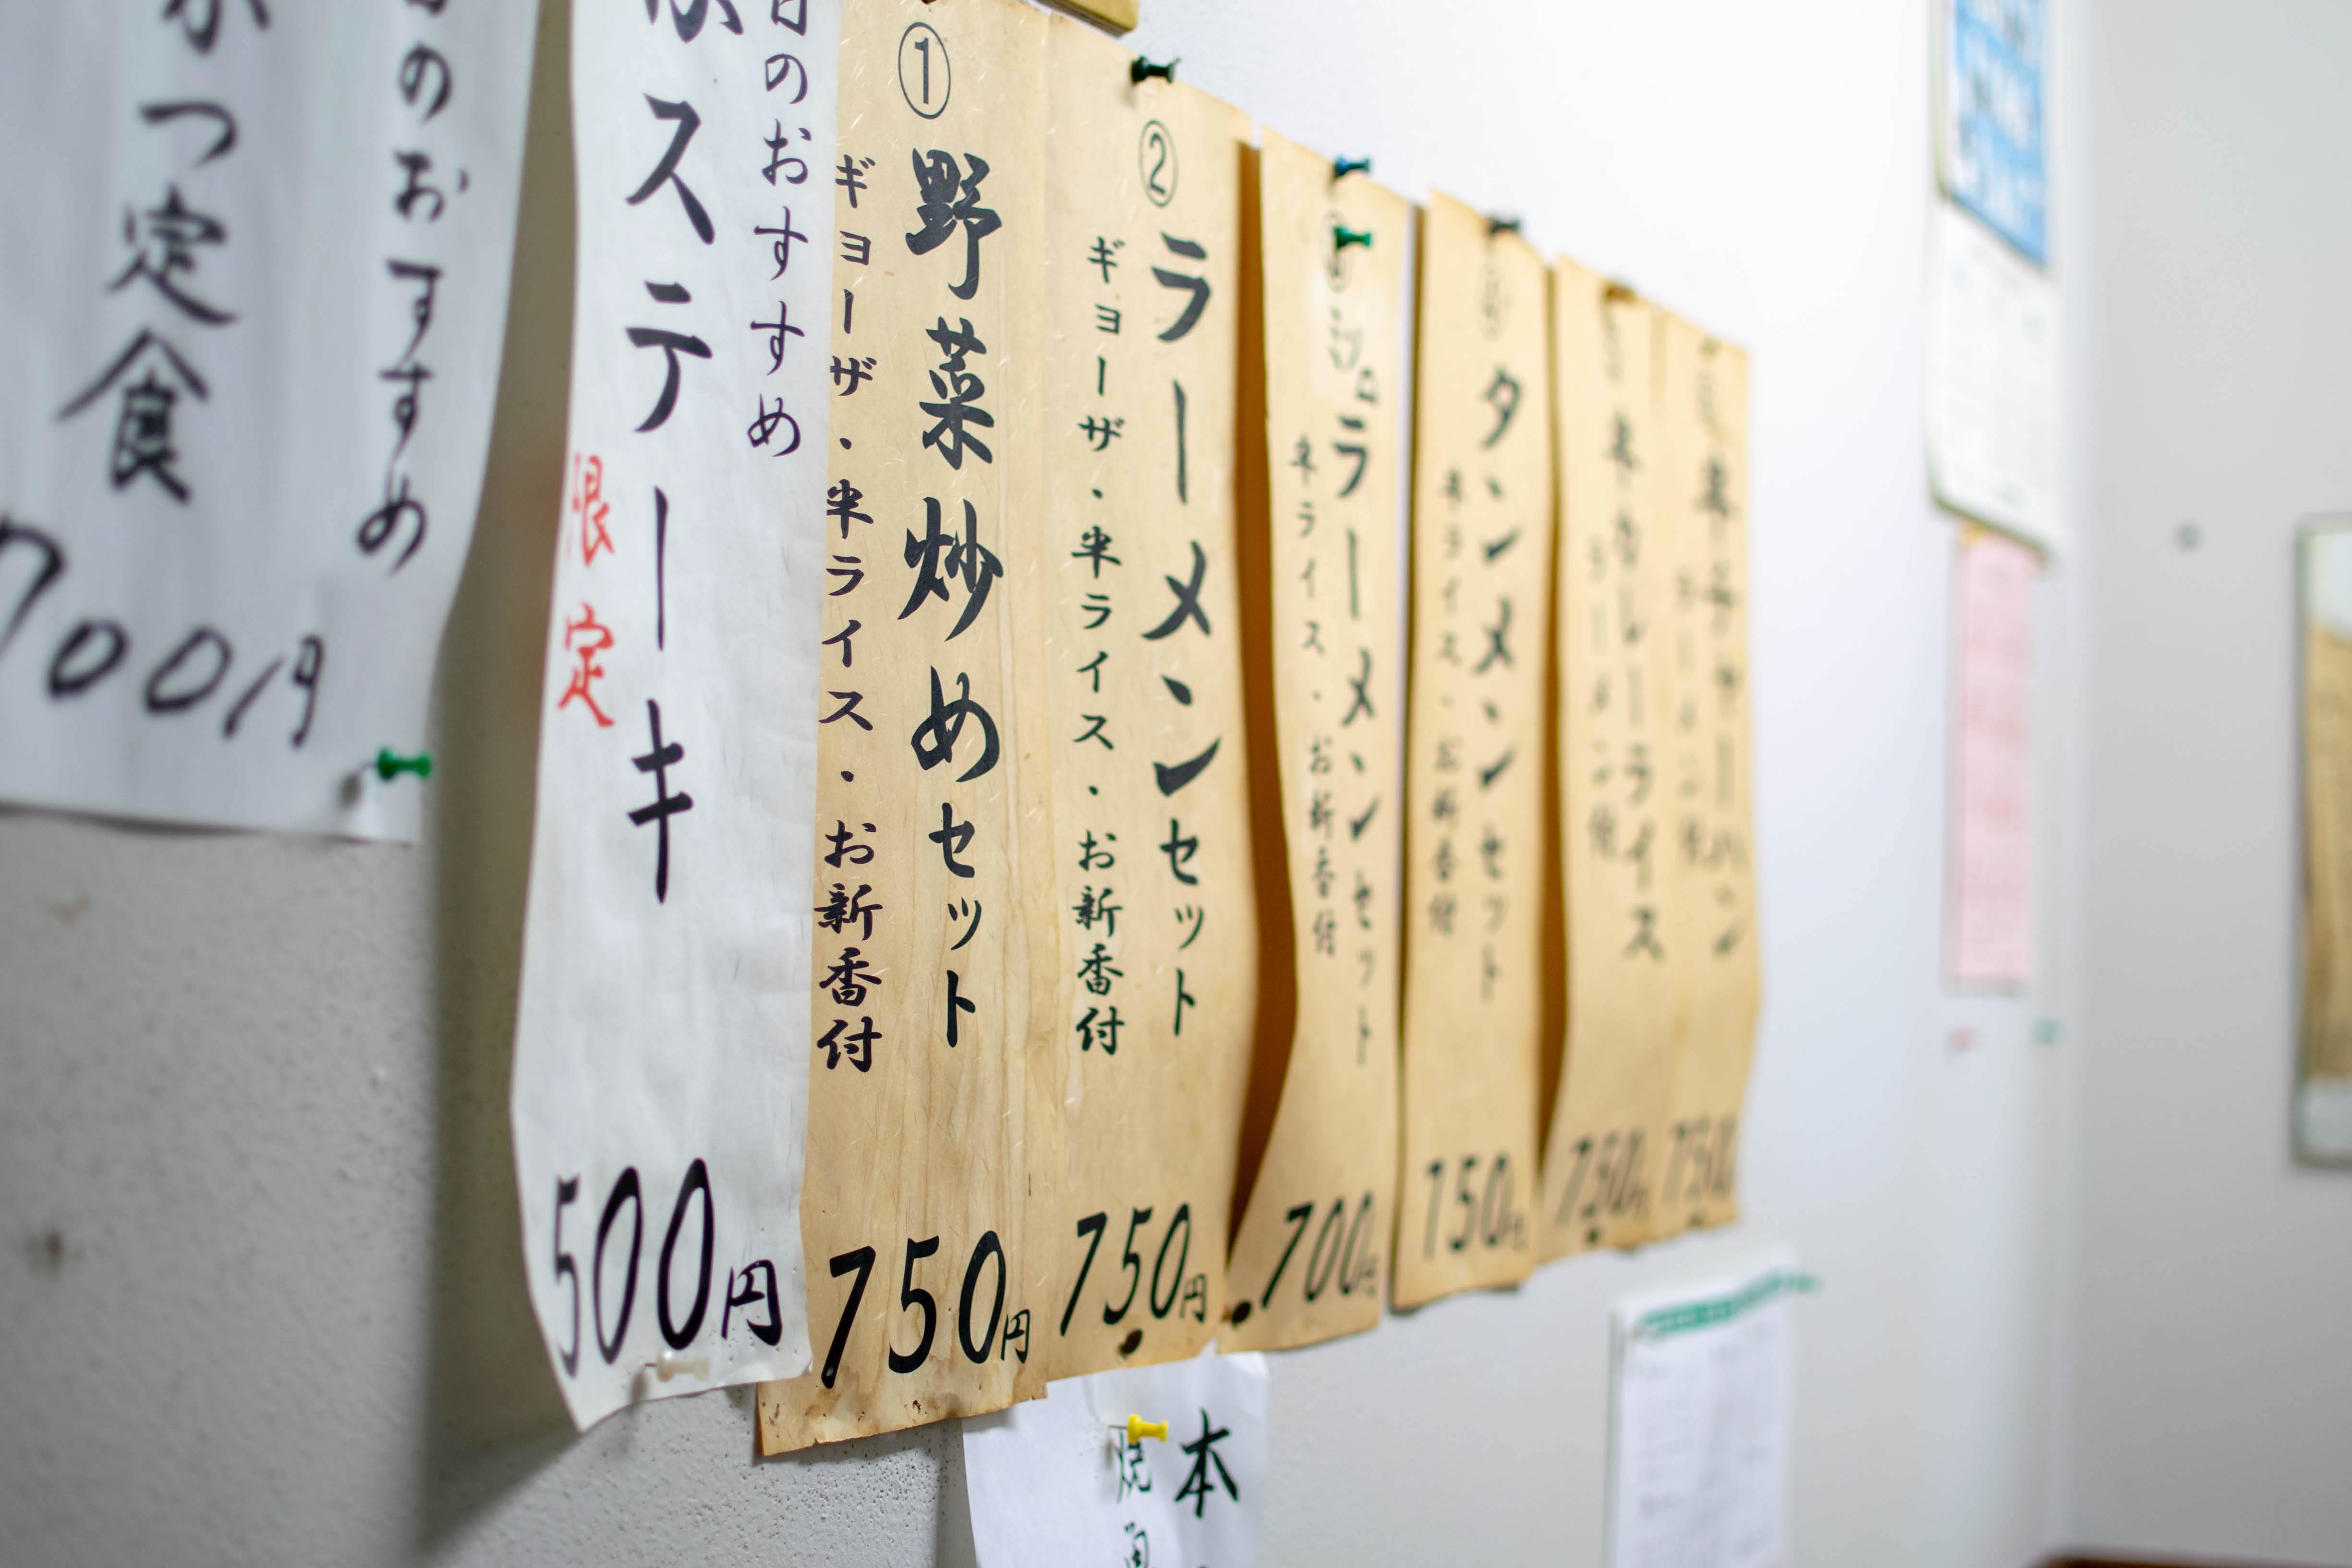 のおすすめ
つ定食
700円
日のおすすめ
ステーキ
限定
500円
①野菜炒めセット
ギョーザ・半ライス・お新香付
750円
②ラーメンセット
ギョーザ・半ライス・お新香付
750円
ミソラーメンセット
半ライス・お新香付
700円
タンメンセット
半ライス・お新香付
750円
半カレーライス
ラーメン付
750円
半チャーハン
ラーメン付
750
本
焼